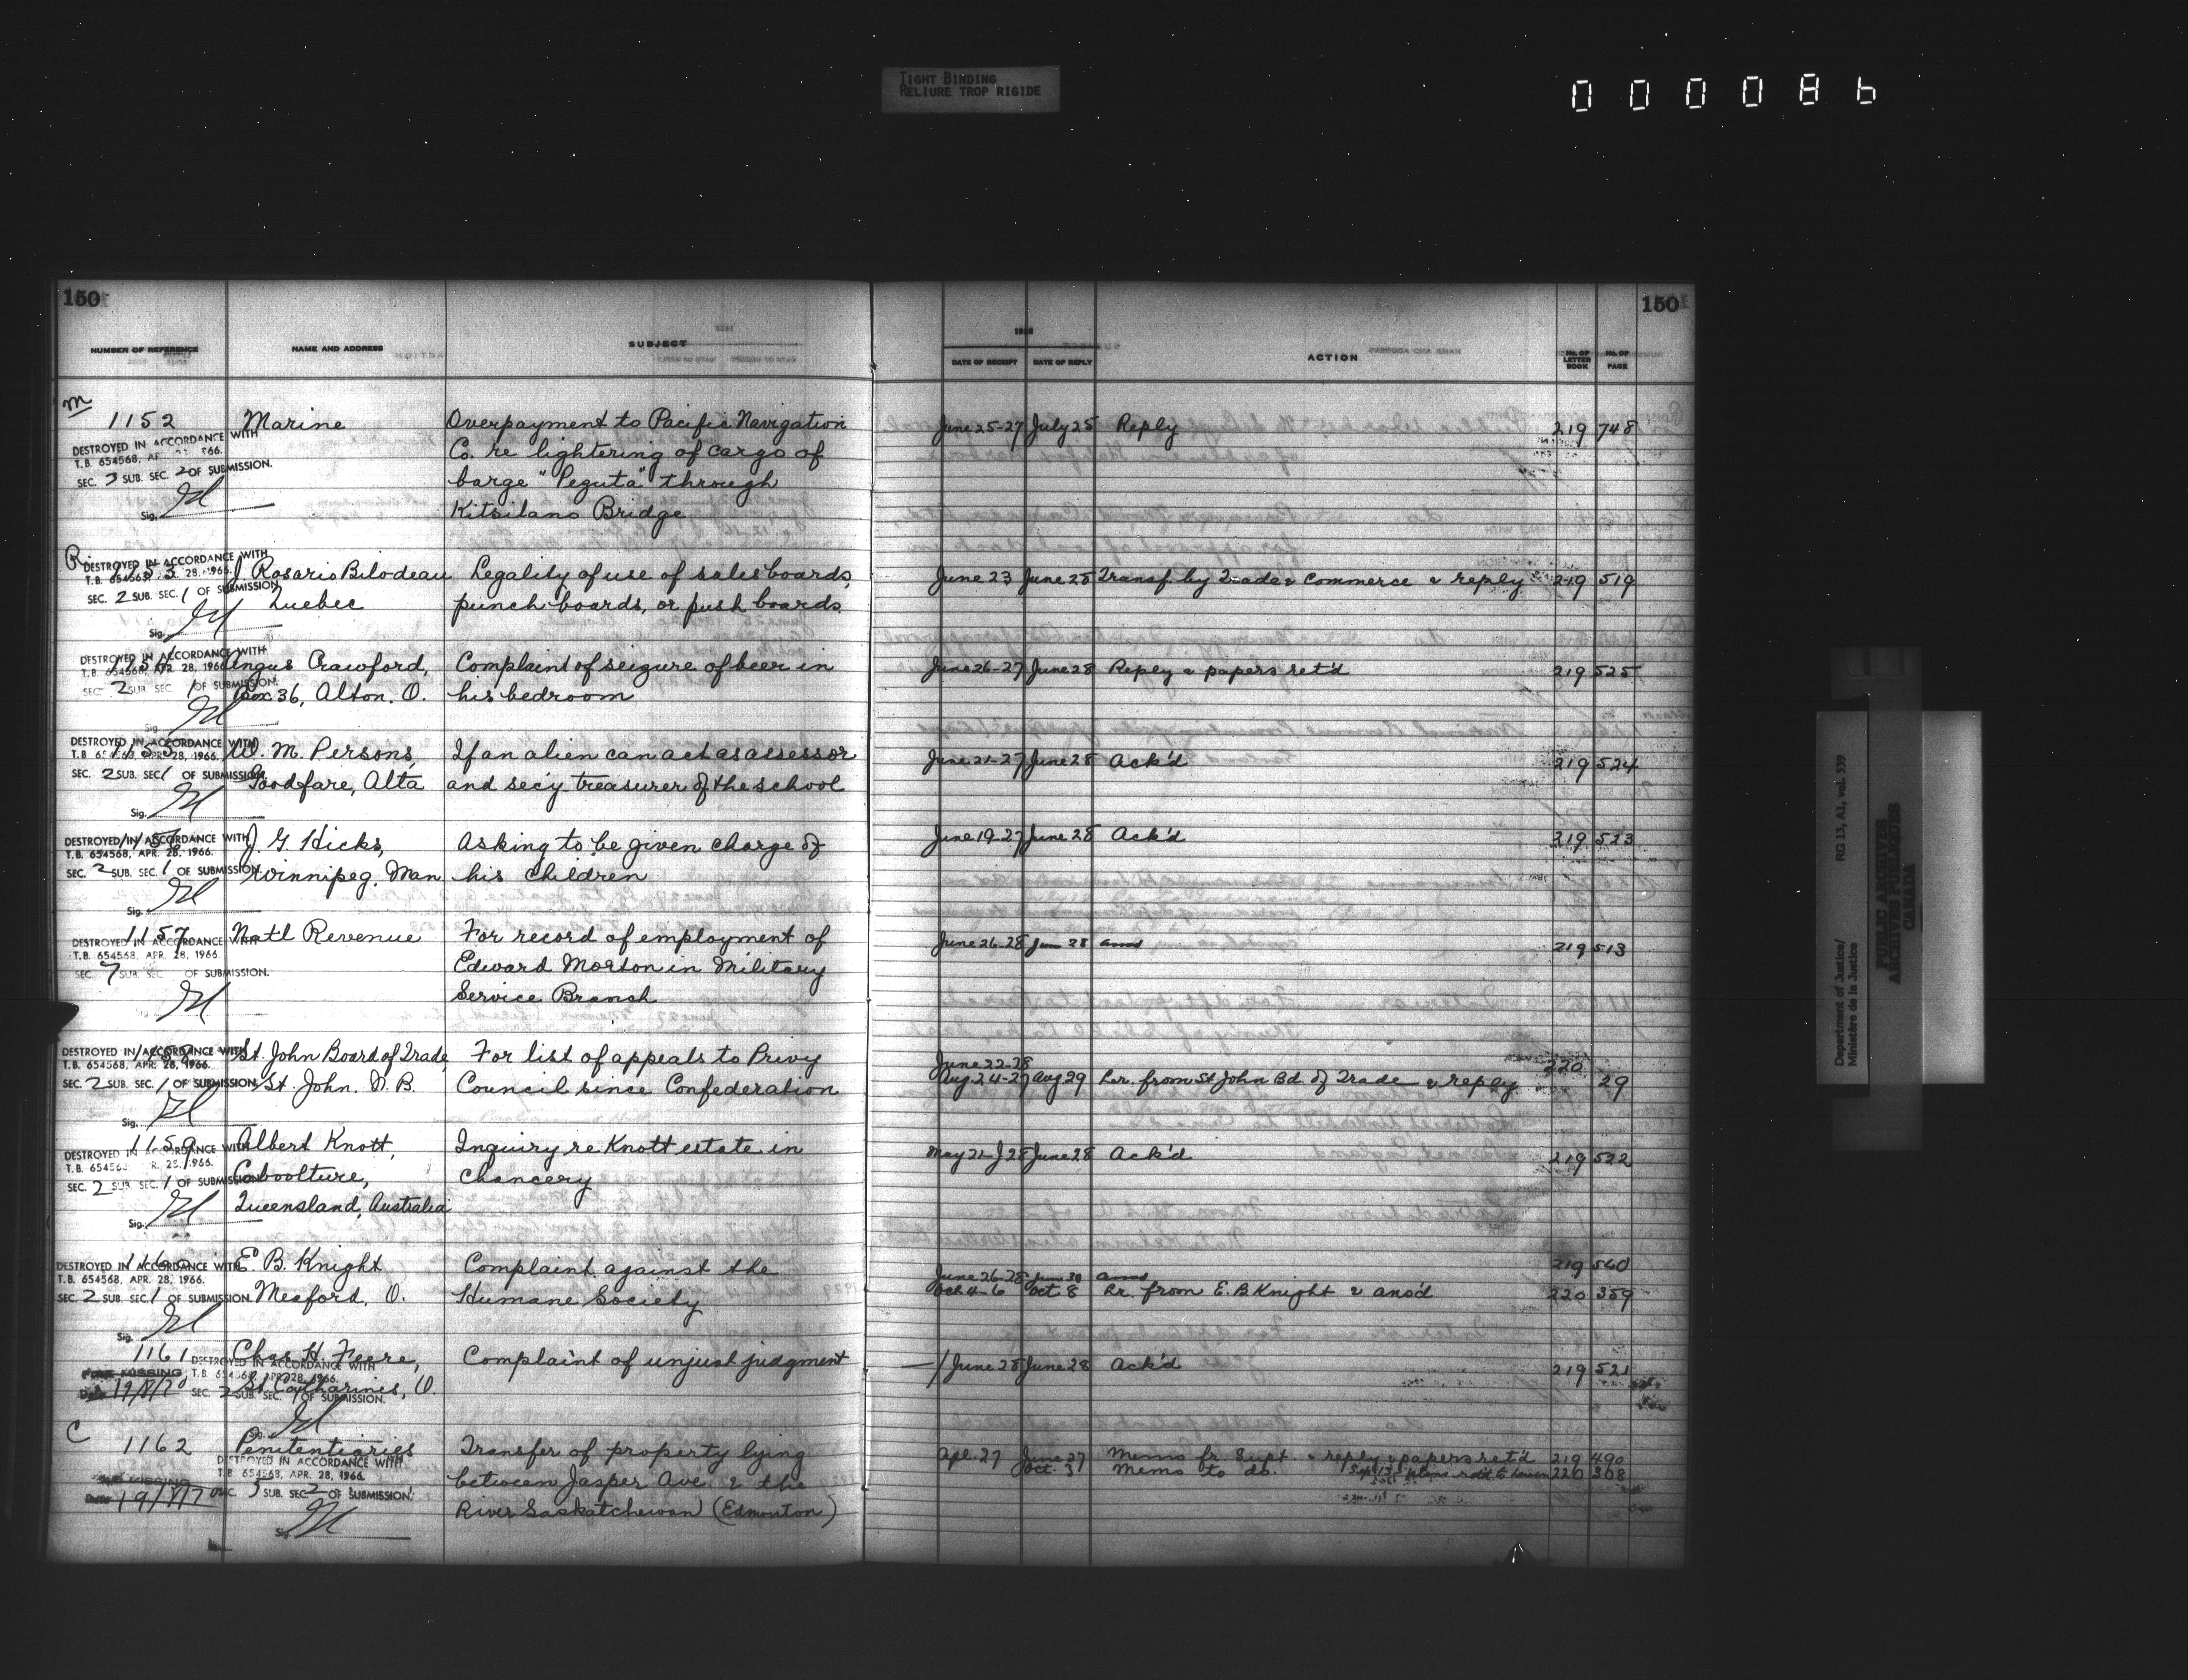 TIGHT BINDING
RELIURE TROP RIGIDE
000086
150
150
NUMBER OF REFERENCE NAME AND ADDRESS SUBJECT
DATE OF RECEIPT DATE OF REPLY ACTION No. OF LETTER BOOK No. OF PAGE
M
1152 Marine Overpayment to Pacific Navigation June 25-27 July 25 Reply 219 748
DESTROYED IN ACCORDANCE WITH
T.B. 654568, 966.
Co. re lightering of cargo of
SEC. 3 SUB. SEC. 2 OF SUBMISSION.
barge "Peguta" through
Sig.
Kitsilano Bridge
R 1153 J. Rosario Bilodeau Legality of use of sales boards, June 23 June 28 Transf. by Trade & Commerce & reply 219 519
DESTROYED IN ACCORDANCE WITH
T.B. 654568, 28, 1966.
SEC. 2 SUB. SEC. 1 OF SUBMISSION
Quebec punch boards, or push boards
Sig.
1154 Angus Crawford, Complaint of seizure of beer in June 26-27 June 28 Reply & papers ret'd 219 525
DESTROYED IN ACCORDANCE WITH
T.B. 654568, APR. 28, 1966
SEC. 2 SUB. SEC. 1 OF SUBMISSION.
Box 36, Alton. O. his bedroom
Sig.
1155 W. M. Persons, If an alien can act as assessor June 21-27 June 28 Ack'd 219 524
DESTROYED IN ACCORDANCE WITH
T.B. 654568, APR. 28, 1966.
SEC. 2 SUB. SEC. 1 OF SUBMISSION
Goodfare, Alta and sec'y treasurer of the school
Sig.
1156 J. G. Hicks, Asking to be given charge of June 19-27 June 28 Ack'd 219 523
DESTROYED IN ACCORDANCE WITH
T.B. 654568, APR. 28, 1966.
SEC. 2 SUB. SEC. 1 OF SUBMISSION.
Winnipeg, Man his children
Sig.
1157 Natl Revenue For record of employment of June 26-28 June 28 ansd 219 513
DESTROYED IN ACCORDANCE WITH
T.B. 654568, APR. 28, 1966.
Edward Morton in Military
SEC. 7 SUB. SEC. OF SUBMISSION.
Service Branch
1158 St. John Board of Trade, For list of appeals to Privy June 22-28 220
DESTROYED IN ACCORDANCE WITH
T.B. 654568, APR. 28, 1966.
SEC. 2 SUB. SEC. 1 OF SUBMISSION
St. John. N. B. Council since Confederation Aug 24-27 Aug 29 Lr. from St John Bd of Trade & reply 29
Sig.
1159 Albert Knott, Inquiry re Knott estate in May 21-J 28 June 28 Ack'd 219 522
DESTROYED IN ACCORDANCE WITH
T.B. 654568 R. 28, 1966.
Caboolture, chancery
SEC. 2 SUB. SEC. 1 OF SUBMISSION
Queensland, Australia
Sig.
1160 E. B. Knight Complaint against the June 26-28 June 30 ansd 219 540
DESTROYED IN ACCORDANCE WITH
T.B. 654568, APR. 28, 1966.
SEC. 2 SUB. SEC. 1 OF SUBMISSION.
Meaford, O. Humane Society Oct 4-6 Oct. 8 Lr. from E. B Knight & ansd 220 359
Sig.
1161 Chas H. Feere, Complaint of unjust judgment June 28 June 28 Ack'd 219 521
DESTROYED IN ACCORDANCE WITH
MISSING T.B. 654568, APR. 28, 1966.
Date 19/8/70 SEC. 2 SUB. SEC. 1 OF SUBMISSION.
St. Catharines, O.
Sig.
C
1162 Penitentiaries Transfer of property lying Apl. 27 June 27 Memo fr. Supt. & reply & papers ret'd 219 490
DESTROYED IN ACCORDANCE WITH
T.B. 654568, APR. 28, 1966.
between Jasper Ave. & the Oct. 3 Memo to do. 220 308
MISSING
Date SEC. 3 SUB. SEC. 2 OF SUBMISSION.
River Saskatchewan (Edmonton)
Sig.
Department of Justice/ RG 13, A1, vol. 539
Ministère de la Justice
PUBLIC ARCHIVES
ARCHIVES PUBLIQUES
CANADA